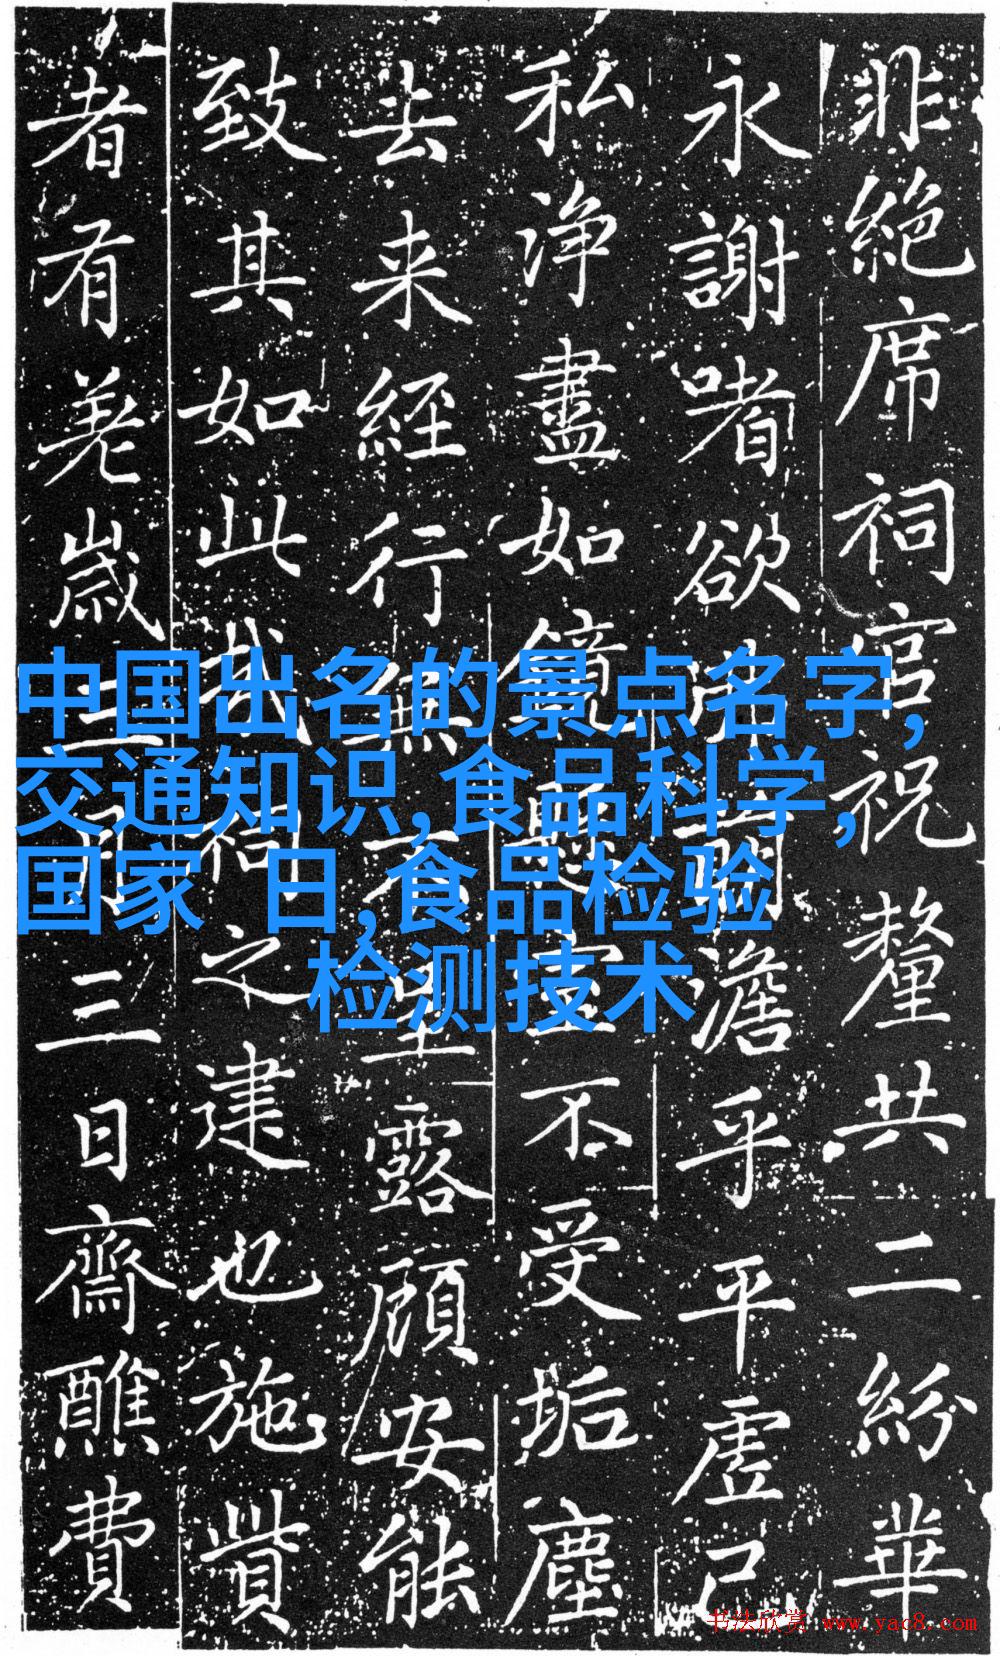 非絕席祠官祝釐共二紛華
永謝嗜欲澹乎平虛己
私淨盡如鏡懸空不受垢塵
去来経行無有露顧安能
致其如此哉之建也施貲
者有歲三日齋醮費
中国出名的景点名字,
交通知识,食品科学,
国家 日,食品检验
检测技术
书法欣赏 www.yac8.com